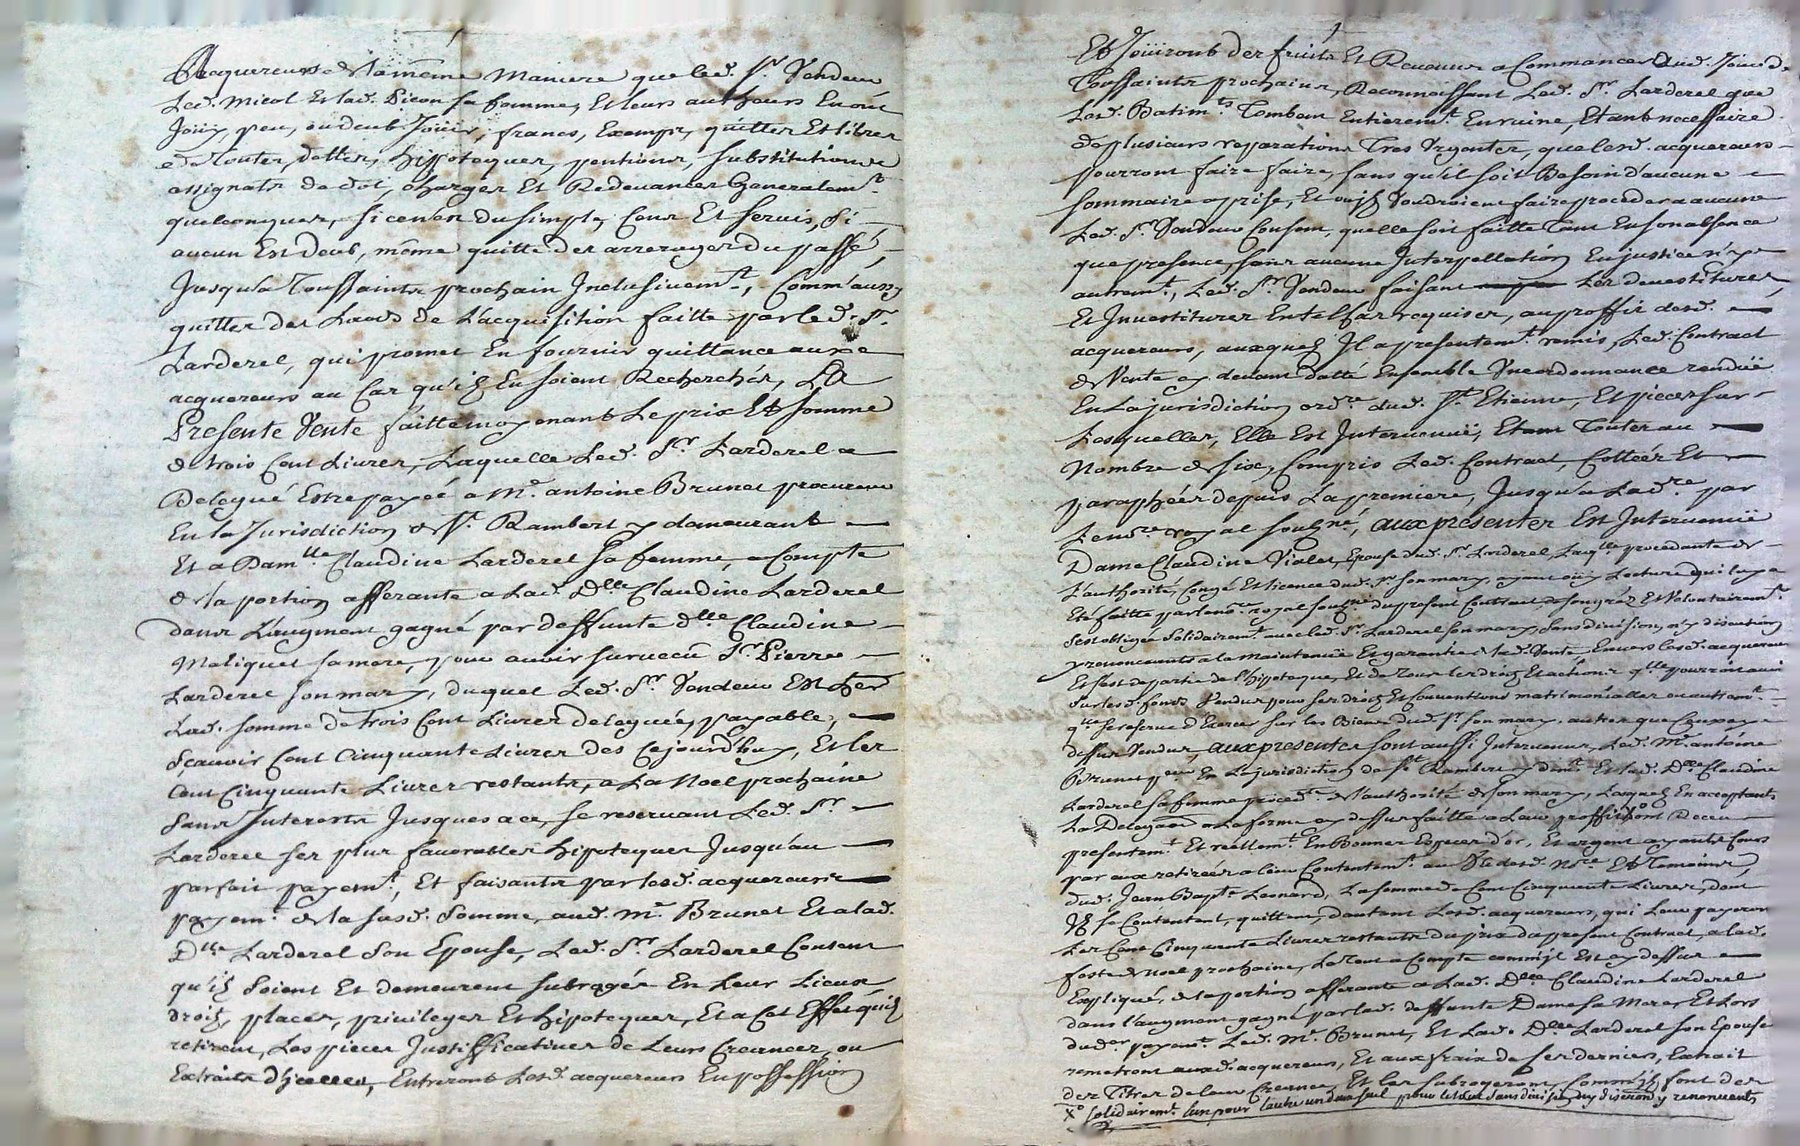 Acquereurs & de la même Maniere que led. Sr. Vendeur
Led. Micol et lad. Picon sa femme, et leurs autheurs en ont
Joüy, peu, ou deub Joüir, francs, Exempts, quittes Et libres
de toutes, dettes, hippoteques, pentions, substitutions
assignats de dot, charges Et Redevances Generalemt.
quelconques, si ce n'est du simple, Cens Et servis, si
aucun Est deub, même quitte des arrerages du passé,
Jusqu'a Toussaints prochain Inclusivemt., Comm'aussy
quittes des Laods de L'acquisition faitte par led. Sr.
Larderel, qui promet En fournir quittance aux
acquereurs au Cas qu'ils En soient Recherchés, La
Presente Vente faitte moyenant Le prix Et somme
de trois Cent Livres, Laquelle Led. Sr. Larderel a
Delegué Estre payée a Me. antoine Brunet procureur
En la Jurisdiction de St. Rambert y demeurant
Et a Damlle. Claudine Larderel sa femme, a Compte
de la portion afferante a Lad. Dlle Claudine Larderel
dans L'augment gagné par deffunte dlle Claudine
Maliquet sa mere, pour avoir survecu Sr. Pierre
Larderel son mary, duquel Led. Sr. Vendeur Est her
Lad. somme de trois Cent Livres deleguée, payable,
sçavoir Cent Cinquante Livres des Cejourd'huy, Et les
Cent Cinquante Livres restants, a La Noel prochaine
sans Interests Jusques a ce, se reservant Led. Sr.
Larderel ses plus favorables hipoteques Jusqu'au
parfait payemt., Et faisants par lesd. acquereurs
payemt. de la susd. somme, aud. Me. Brunet Et a lad.
Dlle Larderel son Epouse, Led. Sr. Larderel Consent
qu'ils soient Et demeurent subrogés En Leur Lieux,
droits, places, privileges Et hipoteques, Et a Cet Effet qu'ils
retirent, Les pieces Justifficatives de Leurs Creances, ou
Extraits d'Icelles, Entreront Lesd. acquereurs En possession
Et Joüiront des fruits Et Revenus a Commancer dud. Jour de
Toussaints prochains, Reconnoissant Led. Sr. Larderel que
Lesd. Batimts Tombent Entieremt. En ruine, Et ont necessaire
de plusieurs reparations Tres Urgentes, que lesd. acquereurs
pourront faire faire, sans qu'il soit Besoin d'aucune
sommaire aprise, Et ou ils Voudroient faire proceder a aucune
Led. Sr. Vendeur Consent, quelle soit faitte Tant En son absence
que presence, sans aucune Interpellation En justice n'y
autremt., Led. Sr. Vendeur faisant Les devestitures,
Et Investitures En tel cas requises, au proffit desd.
acquereurs, auxquels Il a presentemt. remis, Led. Contract
de Vente cy devant datté Ensemble Une ordonnance rendüe
En La jurisdiction ordre. dud. St. Etienne, Et pieces sur
Lesquelles, Elle Est Intervenuë, Etant Toutes au
Nombre de six, Compris Led. Contract, Cottées Et
paraphées depuis La premiere, Jusqu'a Lad.re par
Le nre royal sougné., aux presentes Est Intervenuë
Dame Claudine Vialet, Epouse dud. Sr. Larderel, Laqlle procedante de
L'authorité, Congé Et licence dud. Sr. son mary, ayant oüy Lecture qui luy a
Eté faitte par le nore. royal sougné du present Contract de son gré Et Volontairemt.
s'est obligée solidairemt. avec led. Sr. Larderel son mary, sans division, n'y discution
y renonceants a la maintenuë Et garantie de lad. Vente Envers Lesd. acquereurs
Et s'est departie de l'hippoteque, Et de Tous les droits Et actions qlle pourroit avoir
sur lesd. fonds Vendus pour ses droits Et Conventions matrimonialles ou autremt.
qlle se reserve d'Exercer sur les Biens dud. Sr. son mary, autres que Ceux cy
dessus Vendus, aux presentes sont aussi Intervenus, Led. Me. antoine
Brunet pror En La jurisdiction de St Rambert y demt. Et lad. Dlle Claudine
Larderel sa femme procedte. de l'authorité de son mary, Lesquels En acceptants
La Delegaon. a La forme cy dessus faitte a Leur proffit Xo ont Receu
presentemt. Et réellemt. En Bonnes Especes d'or, Et argent ayants Cours
par eux retirées a leur Contentemt. au Vu desd. nre Et Temoins,
dud. Jean Bapte Leonard, La somme de Cent Cinquante Livres, dont
Ils se Contentent, quittent, d'autant Lesd. acquereurs, qui Leur payeront
Les Cent Cinquante Livres restants du prix du present Contract, a lad.
feste de noel prochaine, Le Tout a Compte comm'il Est cy dessus
Expliqué, de la portion afferante a Lad. Dlle Claudine Larderel
dans l'augment gagné par lad. deffunte Dame sa Mere, Et Lors
dud.er payemt. Led. Me. Brunet, Et Lad. Dlle. Larderel son Epouse
remettront auxd. acquereurs, Et aux fraix de ses derniers, Extrait
des Titres de leur Creance, Et les subrogeront, Comm'ils font des
Xo solidairemt. l'un pour l'autre un d'eux seul pour le tout sans division ny discuon y renonceants